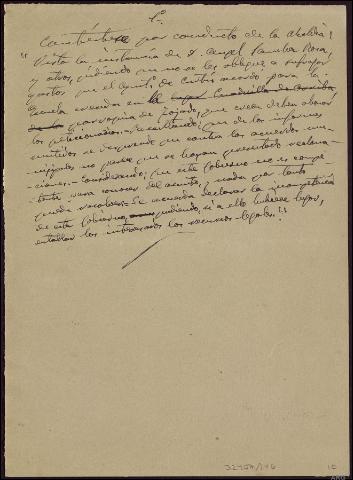 1º.
Contéstese por conducto de la Alcaldía:
"Vista la instancia de D. Angel Rosa,
y otros, pidiendo que no se les obligue a sufragar
gastos que el Ayunt.º de acordó para la
Escuela creada en la
de la parroquia de Tojado, que creen deben abonar
los peticionarios.- Resultando; que de los informes
emitidos se desprende que contra los acuerdos mu-
nicipales no parece que se hayan presentado reclama-
ciones.- Considerando; que este Gobierno no es compe-
tente para conocer del asunto, por tanto
pueda resolver.- Se acuerda declarar la incompetencia
de este Gobierno, pudiendo, si a ello hubiere lugar,
entablar los interesados los recursos legales."
32454/146